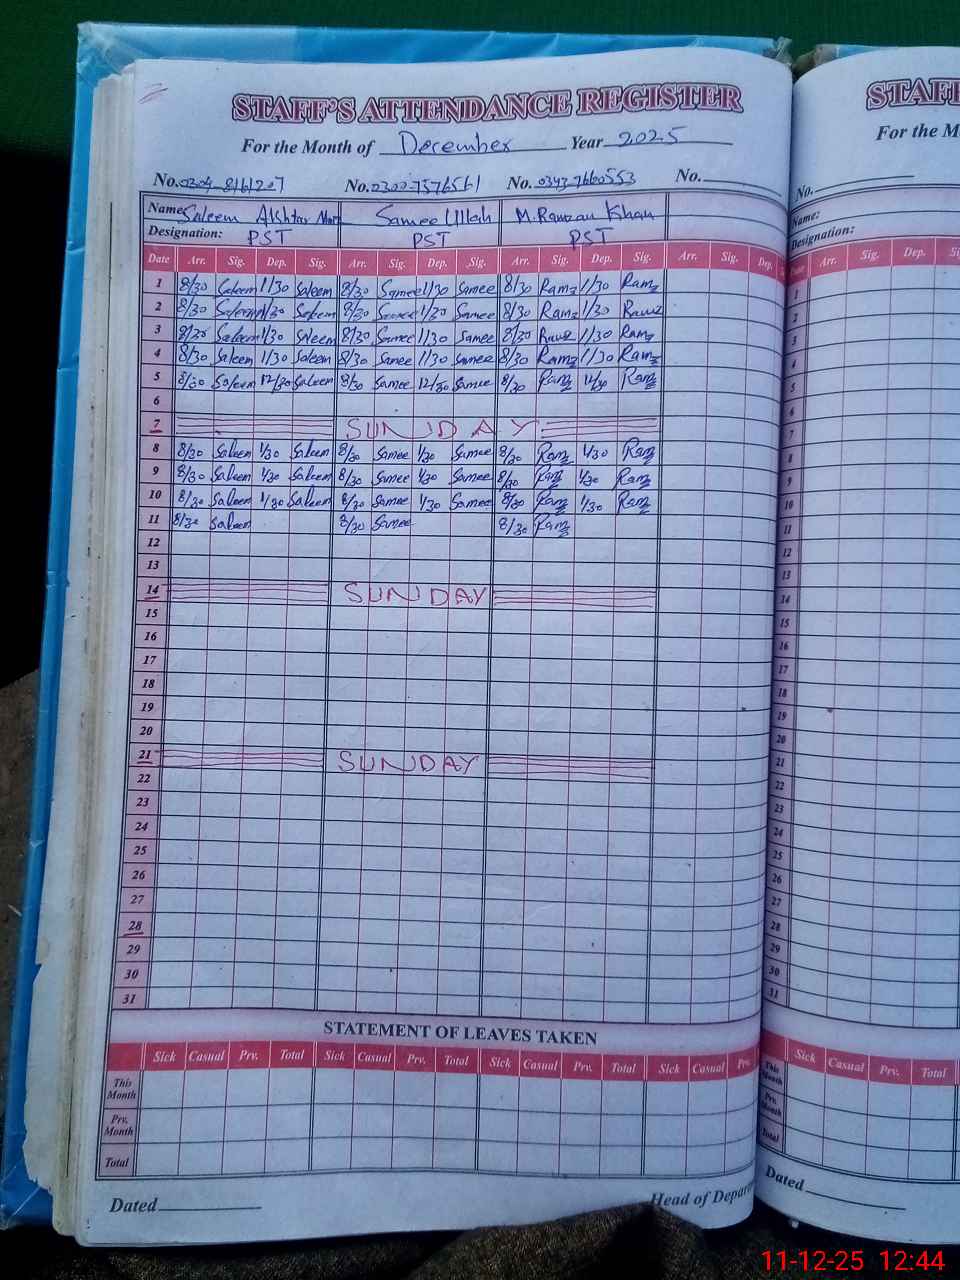 STAFF'S ATTENDANCE REGISTER
For the Month of December Year 2025
No. 0304-8161207 No. 0300-7576561 No. 0343-7660553 No.
Name: Saleem Akhtar Samee Ullah M. Ramzan Khan
Designation: PST PST PST
Date Arr. Sig. Dep. Sig. Arr. Sig. Dep. Sig. Arr. Sig. Dep. Sig. Arr. Sig. Dep.
1 8/30 Saleem 1/30 Saleem 8/30 Samee 1/30 Samee 8/30 Ramz 1/30 Ramz
2 8/30 Saleem 1/30 Saleem 8/30 Samee 1/30 Samee 8/30 Ramz 1/30 Ramz
3 8/30 Saleem 1/30 Saleem 8/30 Samee 1/30 Samee 8/30 Ramz 1/30 Ramz
4 8/30 Saleem 1/30 Saleem 8/30 Samee 1/30 Samee 8/30 Ramz 1/30 Ramz
5 8/30 Saleem 12/30 Saleem 8/30 Samee 12/30 Samee 8/30 Ramz 12/30 Ramz
6
7 SUNDAY
8 8/30 Saleem 1/30 Saleem 8/30 Samee 1/30 Samee 8/30 Ramz 1/30 Ramz
9 8/30 Saleem 1/30 Saleem 8/30 Samee 1/30 Samee 8/30 Ramz 1/30 Ramz
10 8/30 Saleem 1/30 Saleem 8/30 Samee 1/30 Samee 8/30 Ramz 1/30 Ramz
11 8/30 Saleem 8/30 Samee 8/30 Ramz
12
13
14 SUNDAY
15
16
17
18
19
20
21 SUNDAY
22
23
24
25
26
27
28
29
30
31
STATEMENT OF LEAVES TAKEN
Sick Casual Prv. Total Sick Casual Prv. Total Sick Casual Prv. Total Sick Casual Prv.
This Month
Prv. Month
Total
Dated Head of Depar
STAFF
For the M
No.
Name:
Designation:
Date Arr. Sig. Dep.
1
2
3
4
5
6
7
8
9
10
11
12
13
14
15
16
17
18
19
20
21
22
23
24
25
26
27
28
29
30
31
Sick Casual Prv. Total
This Month
Prv. Month
Total
Dated
11-12-25 12:44